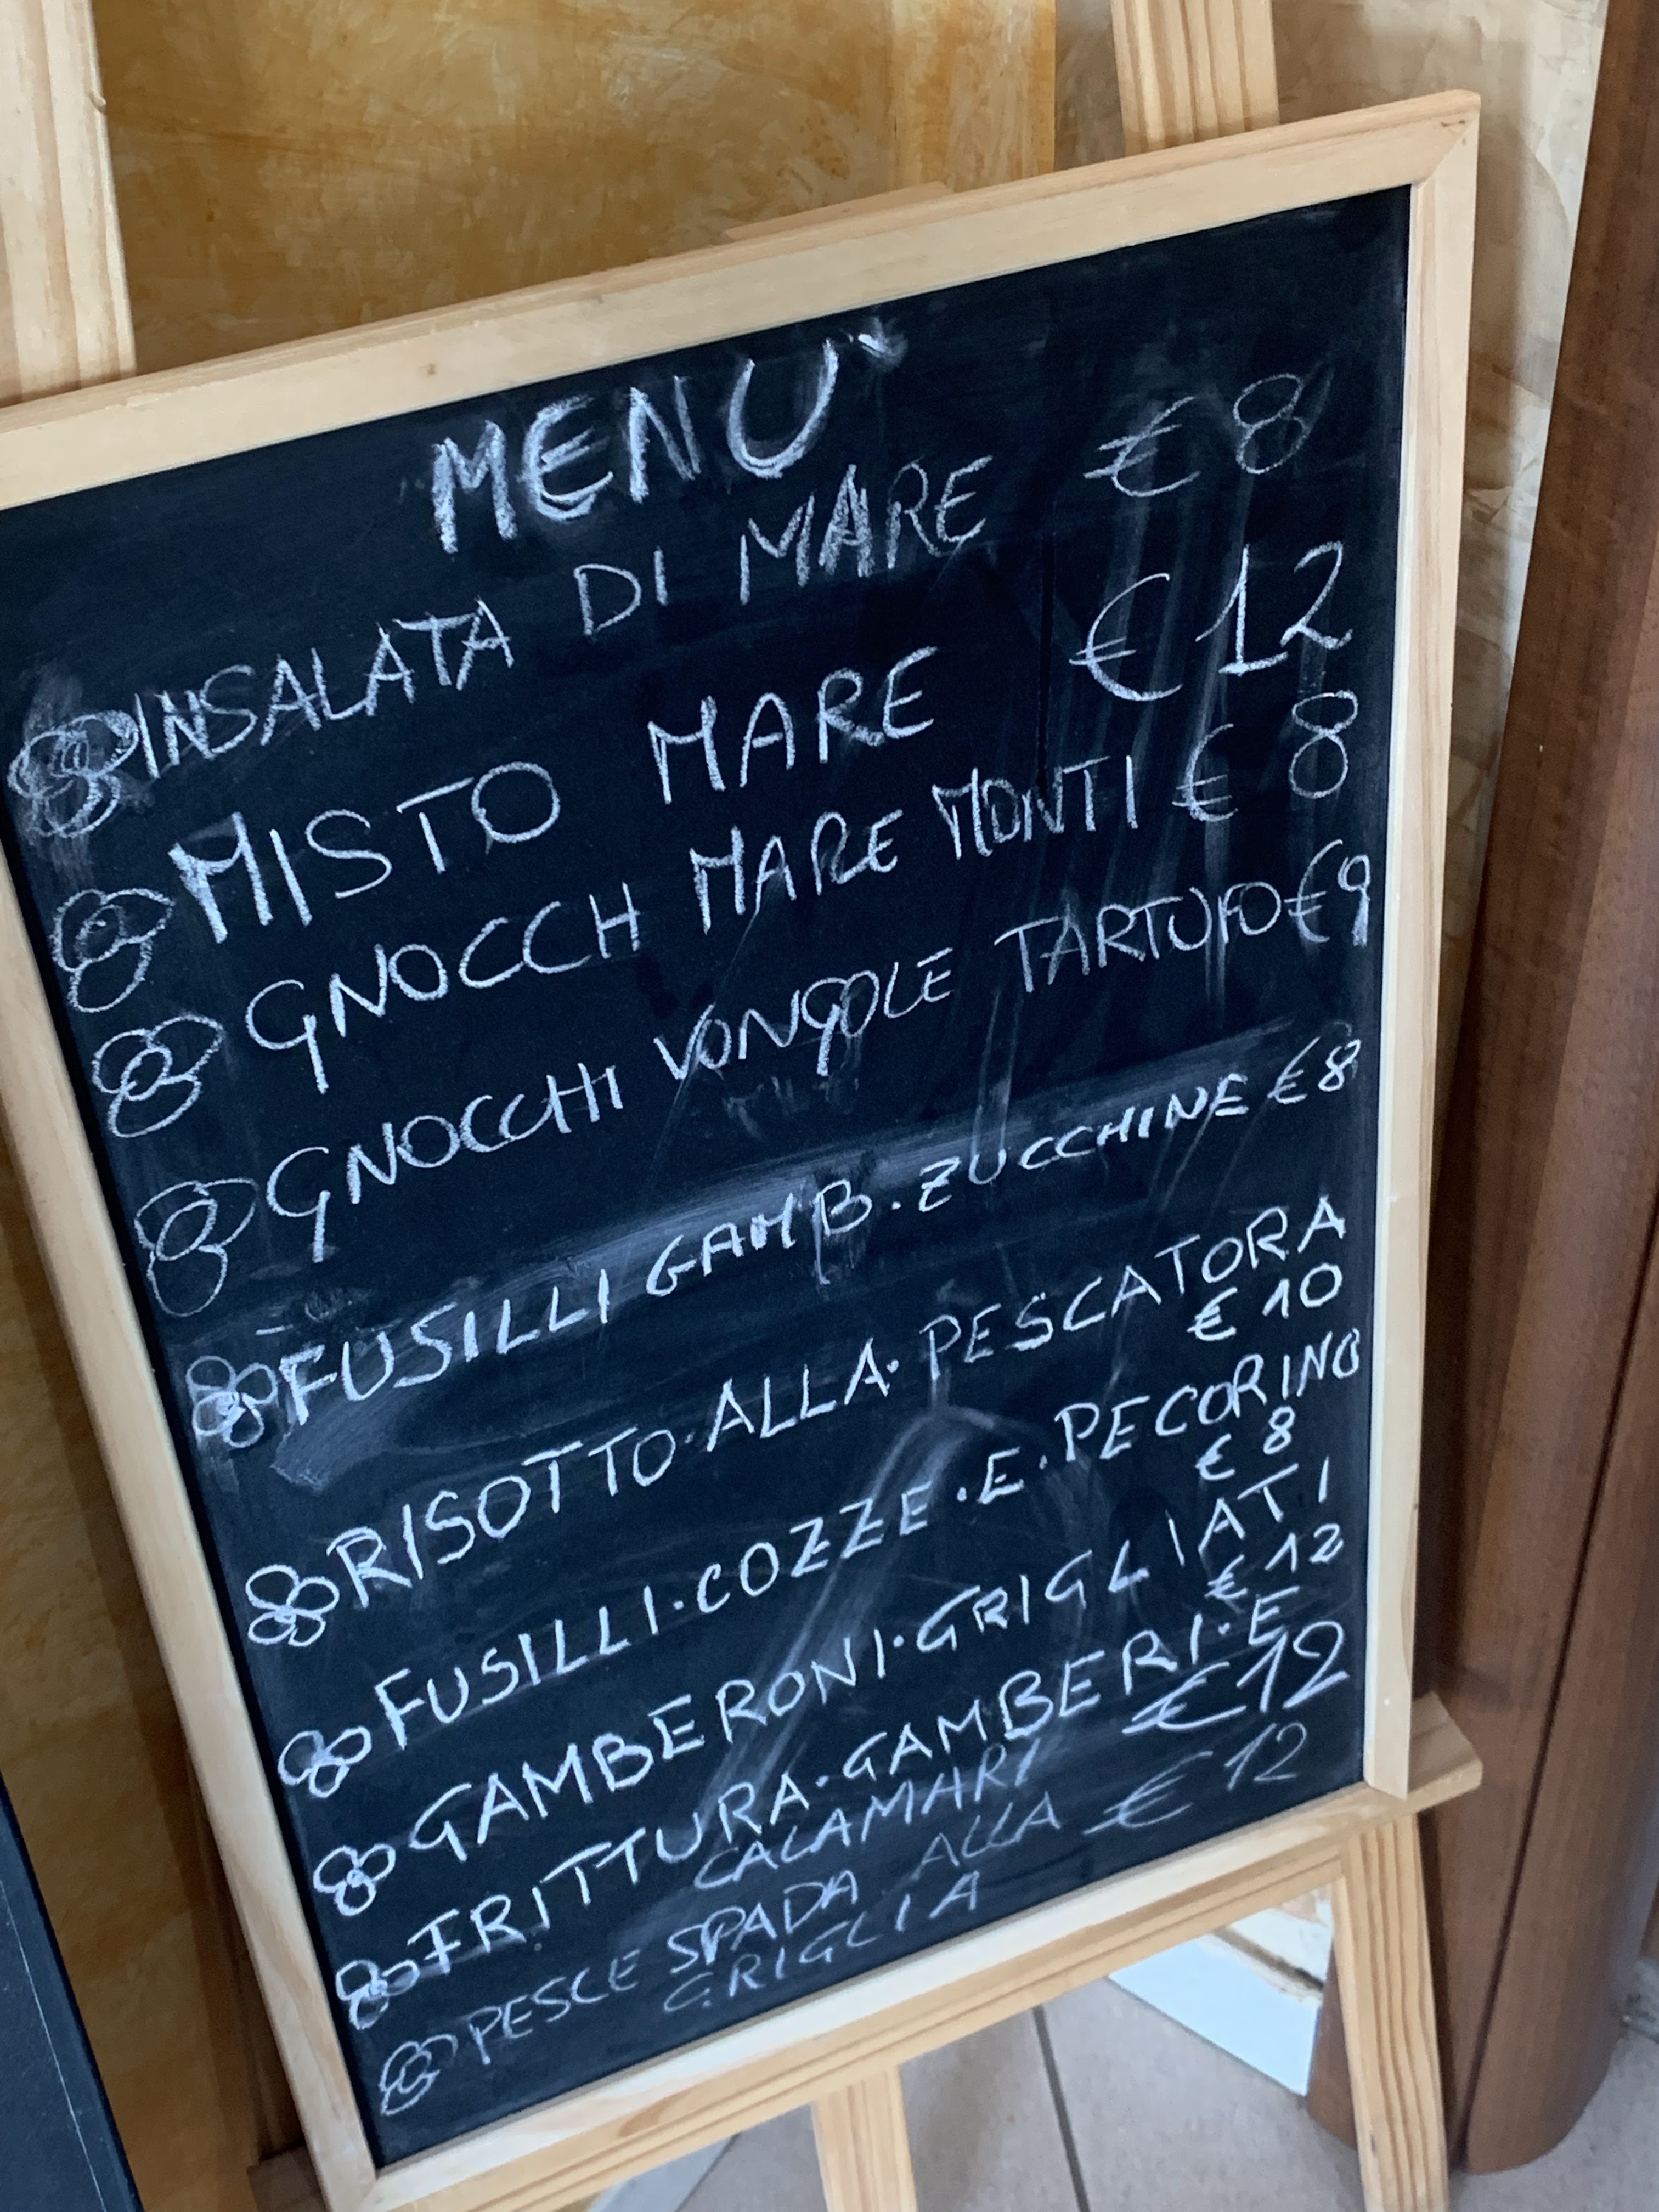 MENU`
INSALATA DI MARE € 8
MISTO MARE € 12
GNOCCH MARE MONTI € 8
GNOCCHI VONGOLE TARTUFO € 9
FUSILLI GAMB. ZUCCHINE € 8
RISOTTO·ALLA·PESCATORA
€ 10
FUSILLI·COZZE·E·PECORINO
€ 8
GAMBERONI·GRIGLIATI
€ 12
FRITTURA·GAMBERI·E
CALAMARI € 12
PESCE SPADA ALLA € 12
GRIGLIA